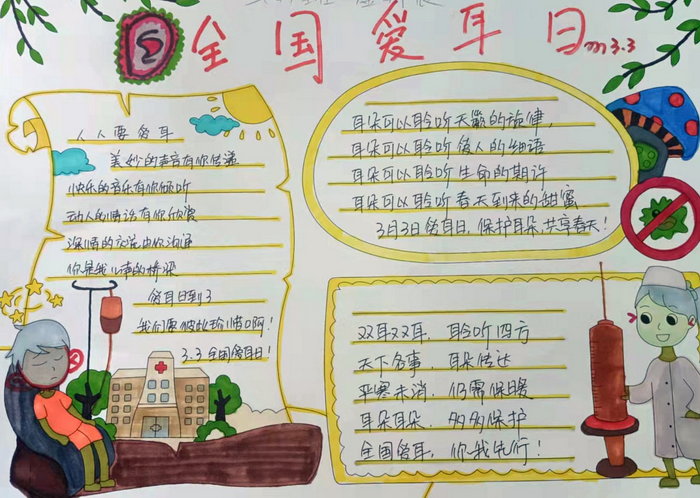 全国爱耳日
3.3
人人要爱耳
美妙的声音有你传递
快乐的音乐有你倾听
动人的情话有你欣赏
深情的交流由你沟通
你是我心声的桥梁
爱耳日到了
我们要彼此珍惜啊！
3.3全国爱耳日！
耳朵可以聆听天籁的旋律，
耳朵可以聆听情人的细语
耳朵可以聆听生命的期许
耳朵可以聆听春天到来的甜蜜
3月3日爱耳日，保护耳朵，共享春天！
双耳双耳，聆听四方
天下各事，耳朵传达
严寒未消，仍需保暖
耳朵耳朵，多多保护
全国爱耳，你我先行！